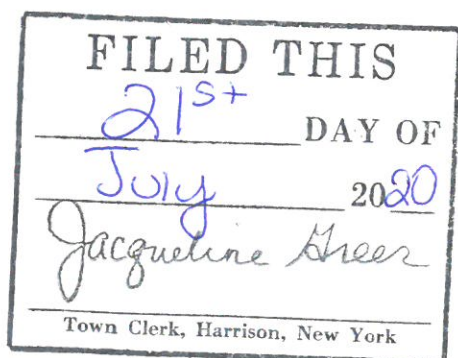 FILED THIS
21st DAY OF
July 2020
Jacqueline Greer
Town Clerk, Harrison, New York